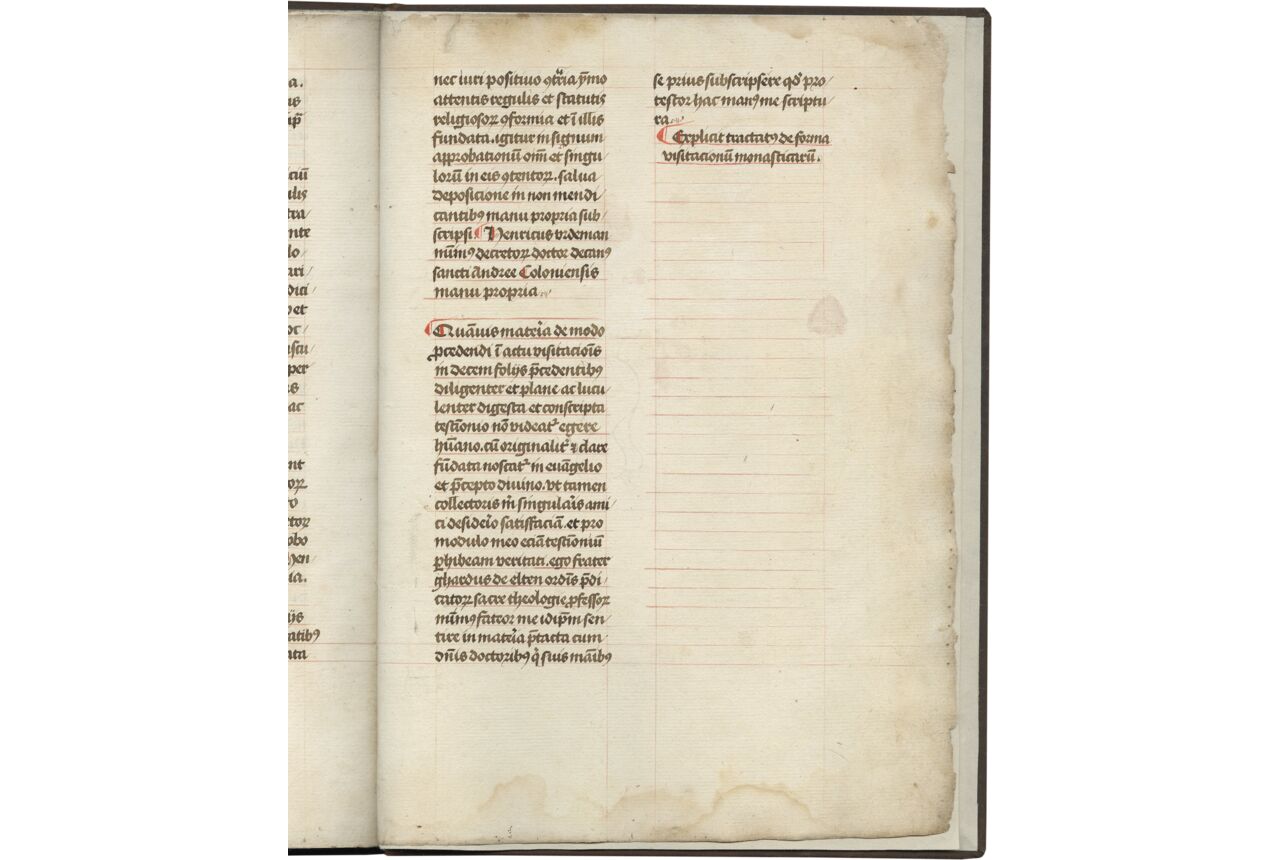 a.
us
ip̄
ciū
ulis
tra/
nte
lo/
ari/
dici
o et
oc/
uscu/
per
us
ac
nt
orꝝ
ro
ctorꝝ
obo
hen/
ia.
ijs
tatibꝰ
ata
nec iuri positiuo ꝯtͬria ẏmo
attentis regulis et statutis
religiosorꝝ ꝯformia et ī illis
fundata. igitur in signum
approbationū om̄ et singu/
lorū in eis ꝯtentorꝝ. salua
deposicione in non mendi/
cantibꝰ manu propria sub/
scripsi. Henricus vrdeman
mīmꝰ decretorꝝ doctor decanꝰ
sancti Andree Coloniensis
manu propria.
Quāuis mateͥa de modo
ꝓcedendi ī actu visitacōīs
in decem folijs p̄cedentibꝰ
diligenter et plane ac lucu/
lenter digesta et conscripta
testīonio nō videatᷣ egere
hūano. cū originalitᷣ ⁊ clare
fūdata noscatᷣ in euāgelio
et p̄cepto diuino. vt tamen
collectoris m̄ singulaͥs ami/
ci desideͥo satisfaciā. et pro
modulo meo eciā testīoniū
ꝑhibeam veritati. ego frater
ghardus de elten ordīs p̄di/
catorꝝ sacre theologie ꝓfessorꝝ
mīmꝰ fateor me idip̄m sen/
tire in mateͥa p̄tacta cum
dn̄is doctoribꝰ qͥ suis māibꝰ
se prius subscripsere qd̓ pro/
testor hac manꝰ me scriptu/
ra.
Explicit tractatꝰ de forma
visitacionū monasticarū.